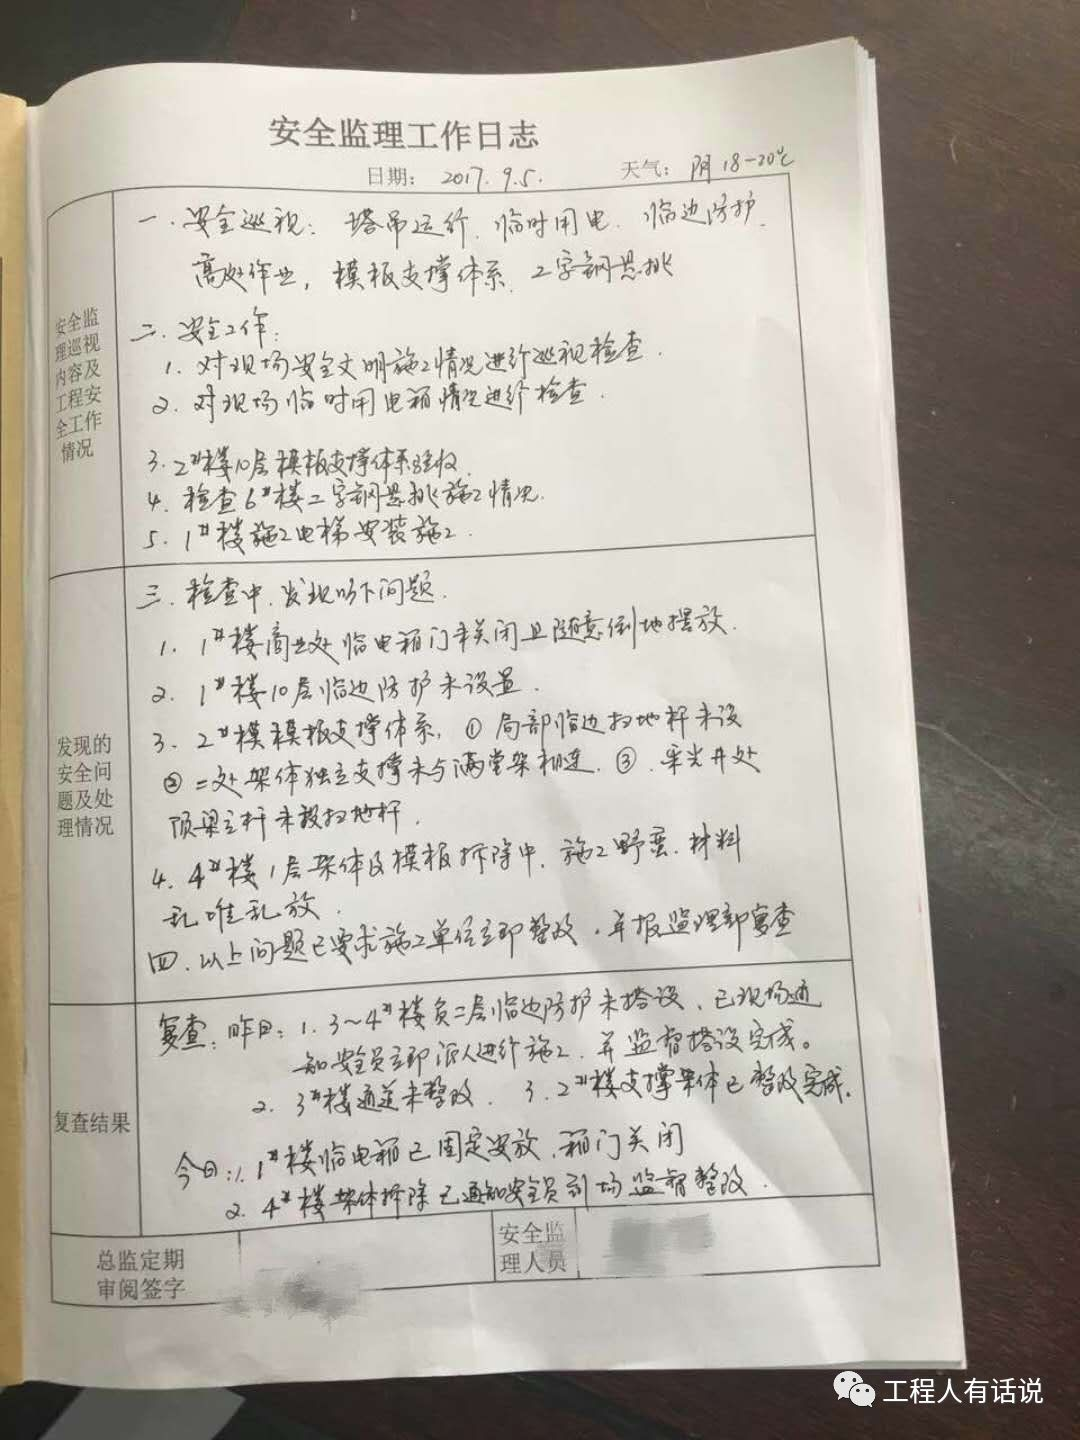 安全监理工作日志
日期： 2017.9.5. 天气： 阴 18-20℃
安全监
理巡视
内容及
工程安
全工作
情况
一.安全巡视：塔吊运行.临时用电.临边防护.
高处作业，模板支撑体系.工字钢悬挑
二.安全工作：
1.对现场安全文明施工情况进行巡视检查.
2.对现场临时用电箱情况进行检查.
3.2#楼10层模板支撑体系验收.
4.检查6#楼工字钢悬挑施工情况.
5.1#楼施工电梯安装施工.
发现的
安全问
题及处
理情况
三.检查中.发现以下问题.
1.1#楼商业处临电箱门未关闭且随意倒地摆放.
2.1#楼10层临边防护未设置.
3.2#楼模板支撑体系.①局部临边扫地杆未设
②二处架体独立支撑未与满堂架相连.③.采光井处
顶梁立杆未设扫地杆.
4.4#楼1层架体及模板拆除中.施工野蛮.材料
乱堆乱放.
四.以上问题已要求施工单位立即整改.并报监理部复查
复查结果
复查：昨日：1.3~4#楼负二层临边防护未搭设.已现场通
知安全员立即派人进行施工.并监督搭设完成。
2.3#楼通道未整改.3.2#楼支撑架体已整改完成.
今日：1.1#楼临电箱已固定安放.箱门关闭
2.4#楼架体拆除已通知安全员到场监督整改.
总监定期
审阅签字
安全监
理人员
工程人有话说